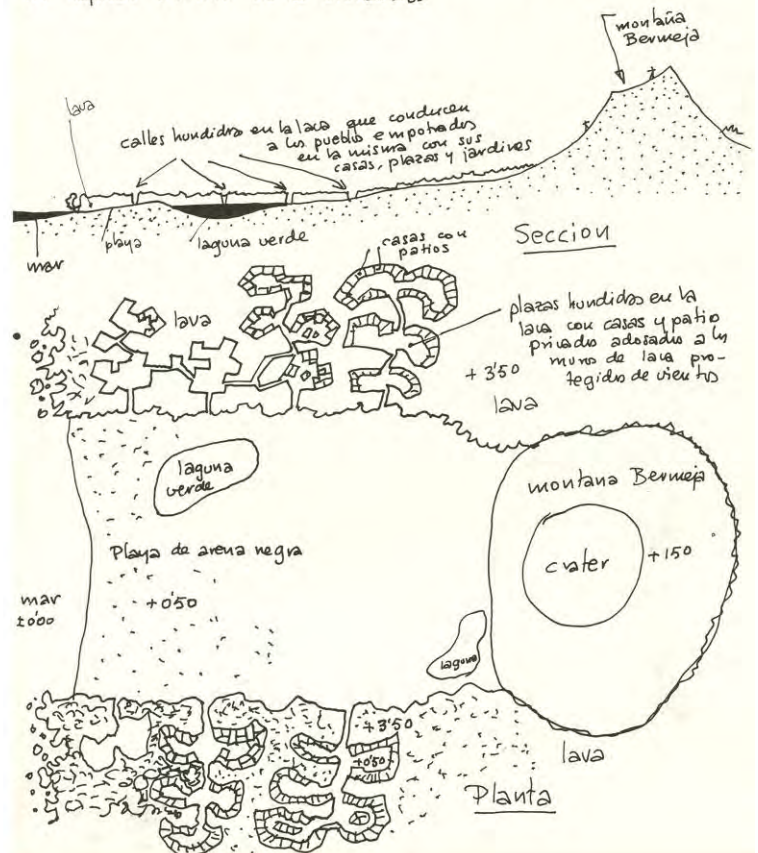 montaña
Bermeja
lava
calles hundidas en la lava que conducen
a los pueblos empotrados
en la misma con sus
casas, plazas y jardines
mar
playa
laguna verde
Seccion
casas con
patios
lava
plazas hundidas en la
lava con casas y patio
privado adosado a los
muros de lava pro-
tegidos de vientos
+3'50
lava
laguna
verde
montana Bermeja
crater
+150
Playa de arena negra
+0'50
mar
±0'00
laguna
+3'50
+0'50
lava
Planta